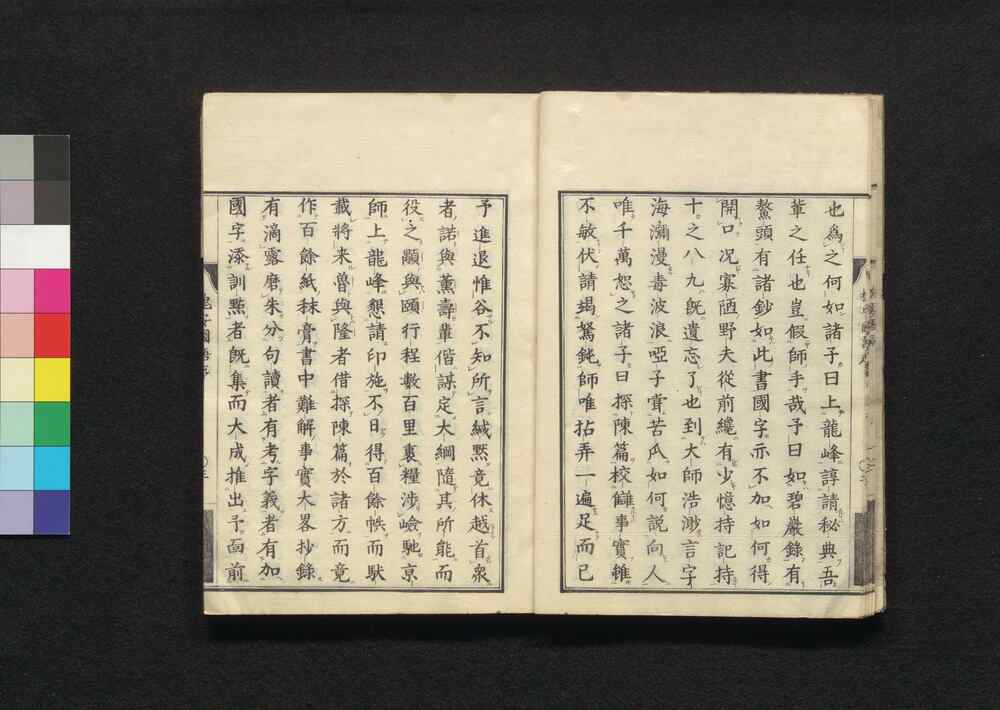 也為之何如諸子曰上龍峰諄請秘典吾
輩之任也豈假師手哉予曰如碧巖錄有
鰲頭有諸鈔如此書國字示不加如何得
開口况寡陋野夫從前纔有少憶持記持
十之八九旣遺忘了也到大師浩渺言字
海瀰漫毒波浪啞子甞苦瓜如何說向人
唯千萬恕之諸子曰探陳篇校讎事實雖
不敏伏請竭駑鈍師唯拈弄一遍足而已
予進退惟谷不知所言緘默竟休越首衆
者諾與薰壽輩偕謀定大綱隨其所能而
役之顯與頤行程數百里裹糧涉嶮馳京
師上龍峰懇請印施不日得百餘帙而馱
載將来魯與隆者借探陳篇於諸方而竟
作百餘紙秣膏書中難解事實大畧抄錄
有滴露磨朱分句讀者有考字義者有加
國字添訓點者旣集而大成推出予面前